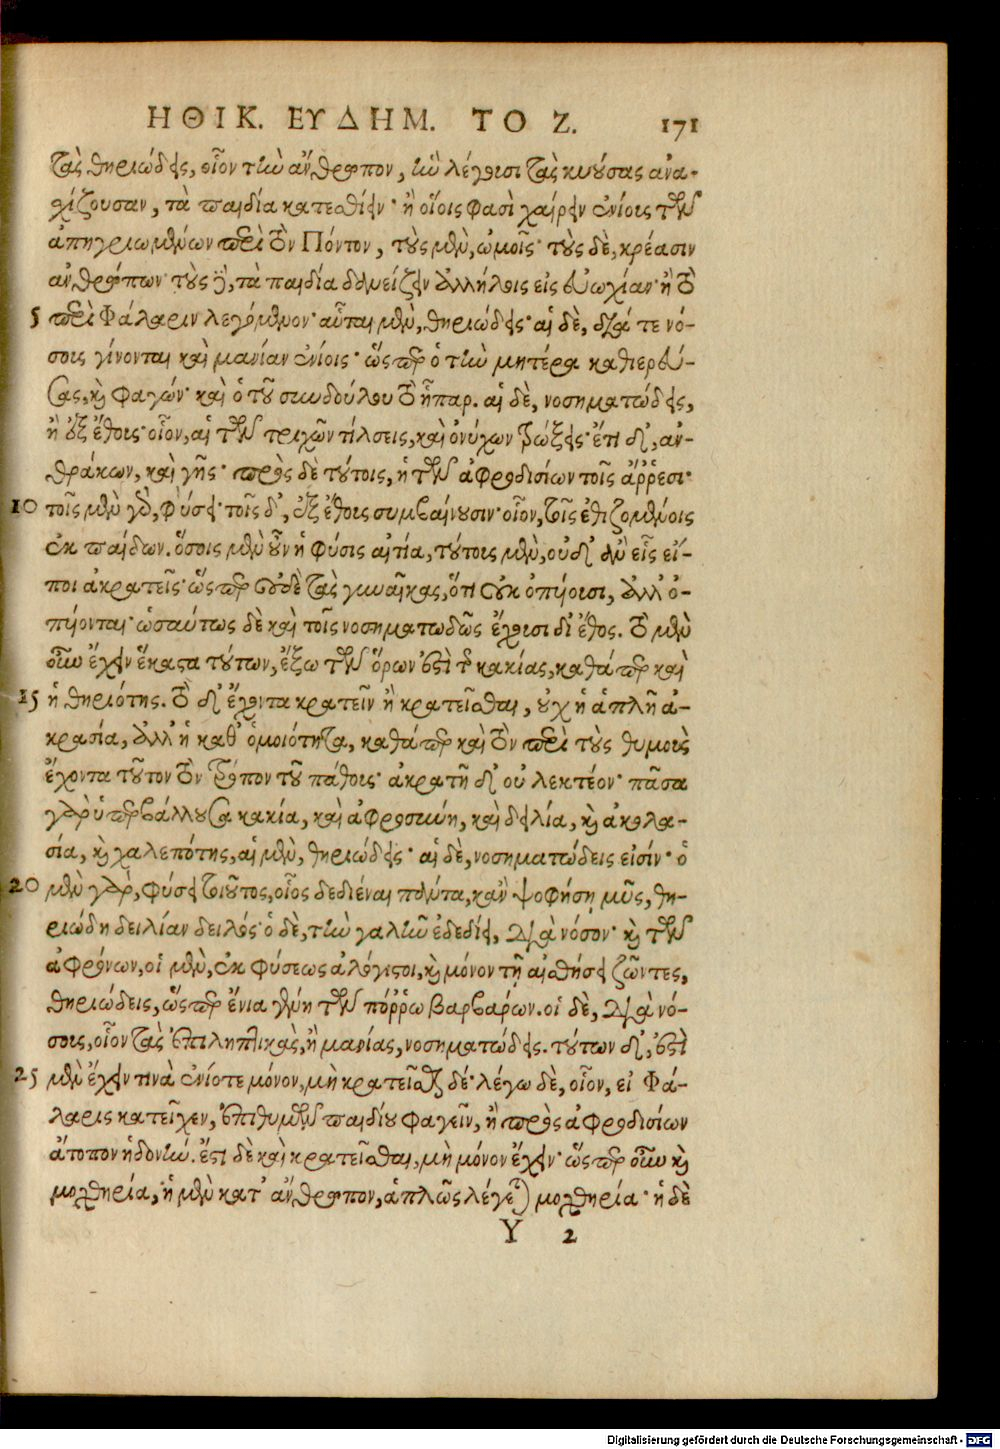 ΗΘΙΚ. ΕΥΔΗΜ. ΤΟ Ζ. 171
τὰς θηριώδεις, οἷον τὴν ἄνθρωπον, ἣν λέγουσι τὰς κυούσας ἀνα-
χίζουσαν, τὰ παιδία κατεσθίειν· ἢ οἵοις φασὶ χαίρειν ἐνίους τῶν
ἀπηγριωμένων περὶ τὸν Πόντον, τοὺς μὲν, ὠμοῖς· τοὺς δὲ, κρέασιν
ἀνθρώπων· τοὺς δὲ, τὰ παιδία δανείζειν ἀλλήλοις εἰς εὐωχίαν· ἢ τὸ
5 περὶ Φάλαριν λεγόμενον· αὗται μὲν, θηριώδεις· αἱ δὲ, διά τε νό-
σους γίνονται καὶ μανίαν ἐνίοις· ὥσπερ ὁ τὴν μητέρα καθιερεύ-
σας, καὶ φαγών· καὶ ὁ τοῦ συνδούλου τὸ ἧπαρ. αἱ δὲ, νοσηματώδεις,
ἢ ἐξ ἔθους· οἷον, αἱ τῶν τριχῶν τίλσεις, καὶ ὀνύχων τρώξεις· ἔτι δ', ἀν-
θράκων, καὶ γῆς· πρὸς δὲ τούτοις, ἡ τῶν ἀφροδισίων τοῖς ἄῤῥεσι·
10 τοῖς μὲν γὰρ, φύσει· τοῖς δ', ἐξ ἔθους συμβαίνουσιν· οἷον, τοῖς ἐθιζομένοις
ἐκ παίδων. ὅσοις μὲν οὖν ἡ φύσις αἰτία, τούτους μὲν, οὐδ' ἂν εἷς εἴ-
ποι ἀκρατεῖς· ὥσπερ οὐδὲ τὰς γυναῖκας, ὅτι οὐκ ὀπύουσι, ἀλλ' ὀ-
πύονται· ὡσαύτως δὲ καὶ τοῖς νοσηματωδῶς ἔχουσι δι' ἔθος. τὸ μὲν
οὖν ἔχειν ἕκαστα τούτων, ἔξω τῶν ὅρων ἐστὶ τῆς κακίας, καθάπερ καὶ
15 ἡ θηριότης. τὸ δ' ἔχοντα κρατεῖν ἢ κρατεῖσθαι, οὐχ ἡ ἁπλῆ ἀ-
κρασία, ἀλλ' ἡ καθ' ὁμοιότητα, καθάπερ καὶ τὸν περὶ τοὺς θυμοὺς
ἔχοντα τοῦτον τὸν τρόπον τοῦ πάθους· ἀκρατῆ δ' οὐ λεκτέον· πᾶσα
γὰρ ὑπερβάλλουσα κακία, καὶ ἀφροσύνη, καὶ δειλία, καὶ ἀκολα-
σία, καὶ χαλεπότης, αἱ μὲν, θηριώδεις· αἱ δὲ, νοσηματώδεις εἰσίν· ὁ
20 μὲν γὰρ, φύσει τοιοῦτος, οἷος δεδιέναι πάντα, κἂν ψοφήσῃ μῦς, θη-
ριώδη δειλίαν δειλός· ὁ δὲ, τὴν γαλῆν ἐδεδίει, διὰ νόσον· καὶ τῶν
ἀφρόνων, οἱ μὲν, ἐκ φύσεως ἀλόγιστοι, καὶ μόνον τῇ αἰσθήσει ζῶντες,
θηριώδεις, ὥσπερ ἔνια γένη τῶν πόῤῥω βαρβάρων. οἱ δὲ, διὰ νό-
σους, οἷον τὰς ἐπιληπτικὰς, ἢ μανίας, νοσηματώδεις. τούτων δ', ἐστὶ
25 μὲν ἔχειν τινὰ ἐνίοτε μόνον, μὴ κρατεῖσθαι δέ· λέγω δὲ, οἷον, εἰ Φά-
λαρις κατεῖχεν, ἐπιθυμῶν παιδίου φαγεῖν, ἢ πρὸς ἀφροδισίων
ἄτοπον ἡδονήν. ἔστι δὲ καὶ κρατεῖσθαι, μὴ μόνον ἔχειν· ὥσπερ οὖν καὶ
μοχθηρία, ἡ μὲν κατ' ἄνθρωπον, ἁπλῶς λέγεται μοχθηρία· ἡ δὲ
Y 2
Digitalisierung gefördert durch die Deutsche Forschungsgemeinschaft - DFG